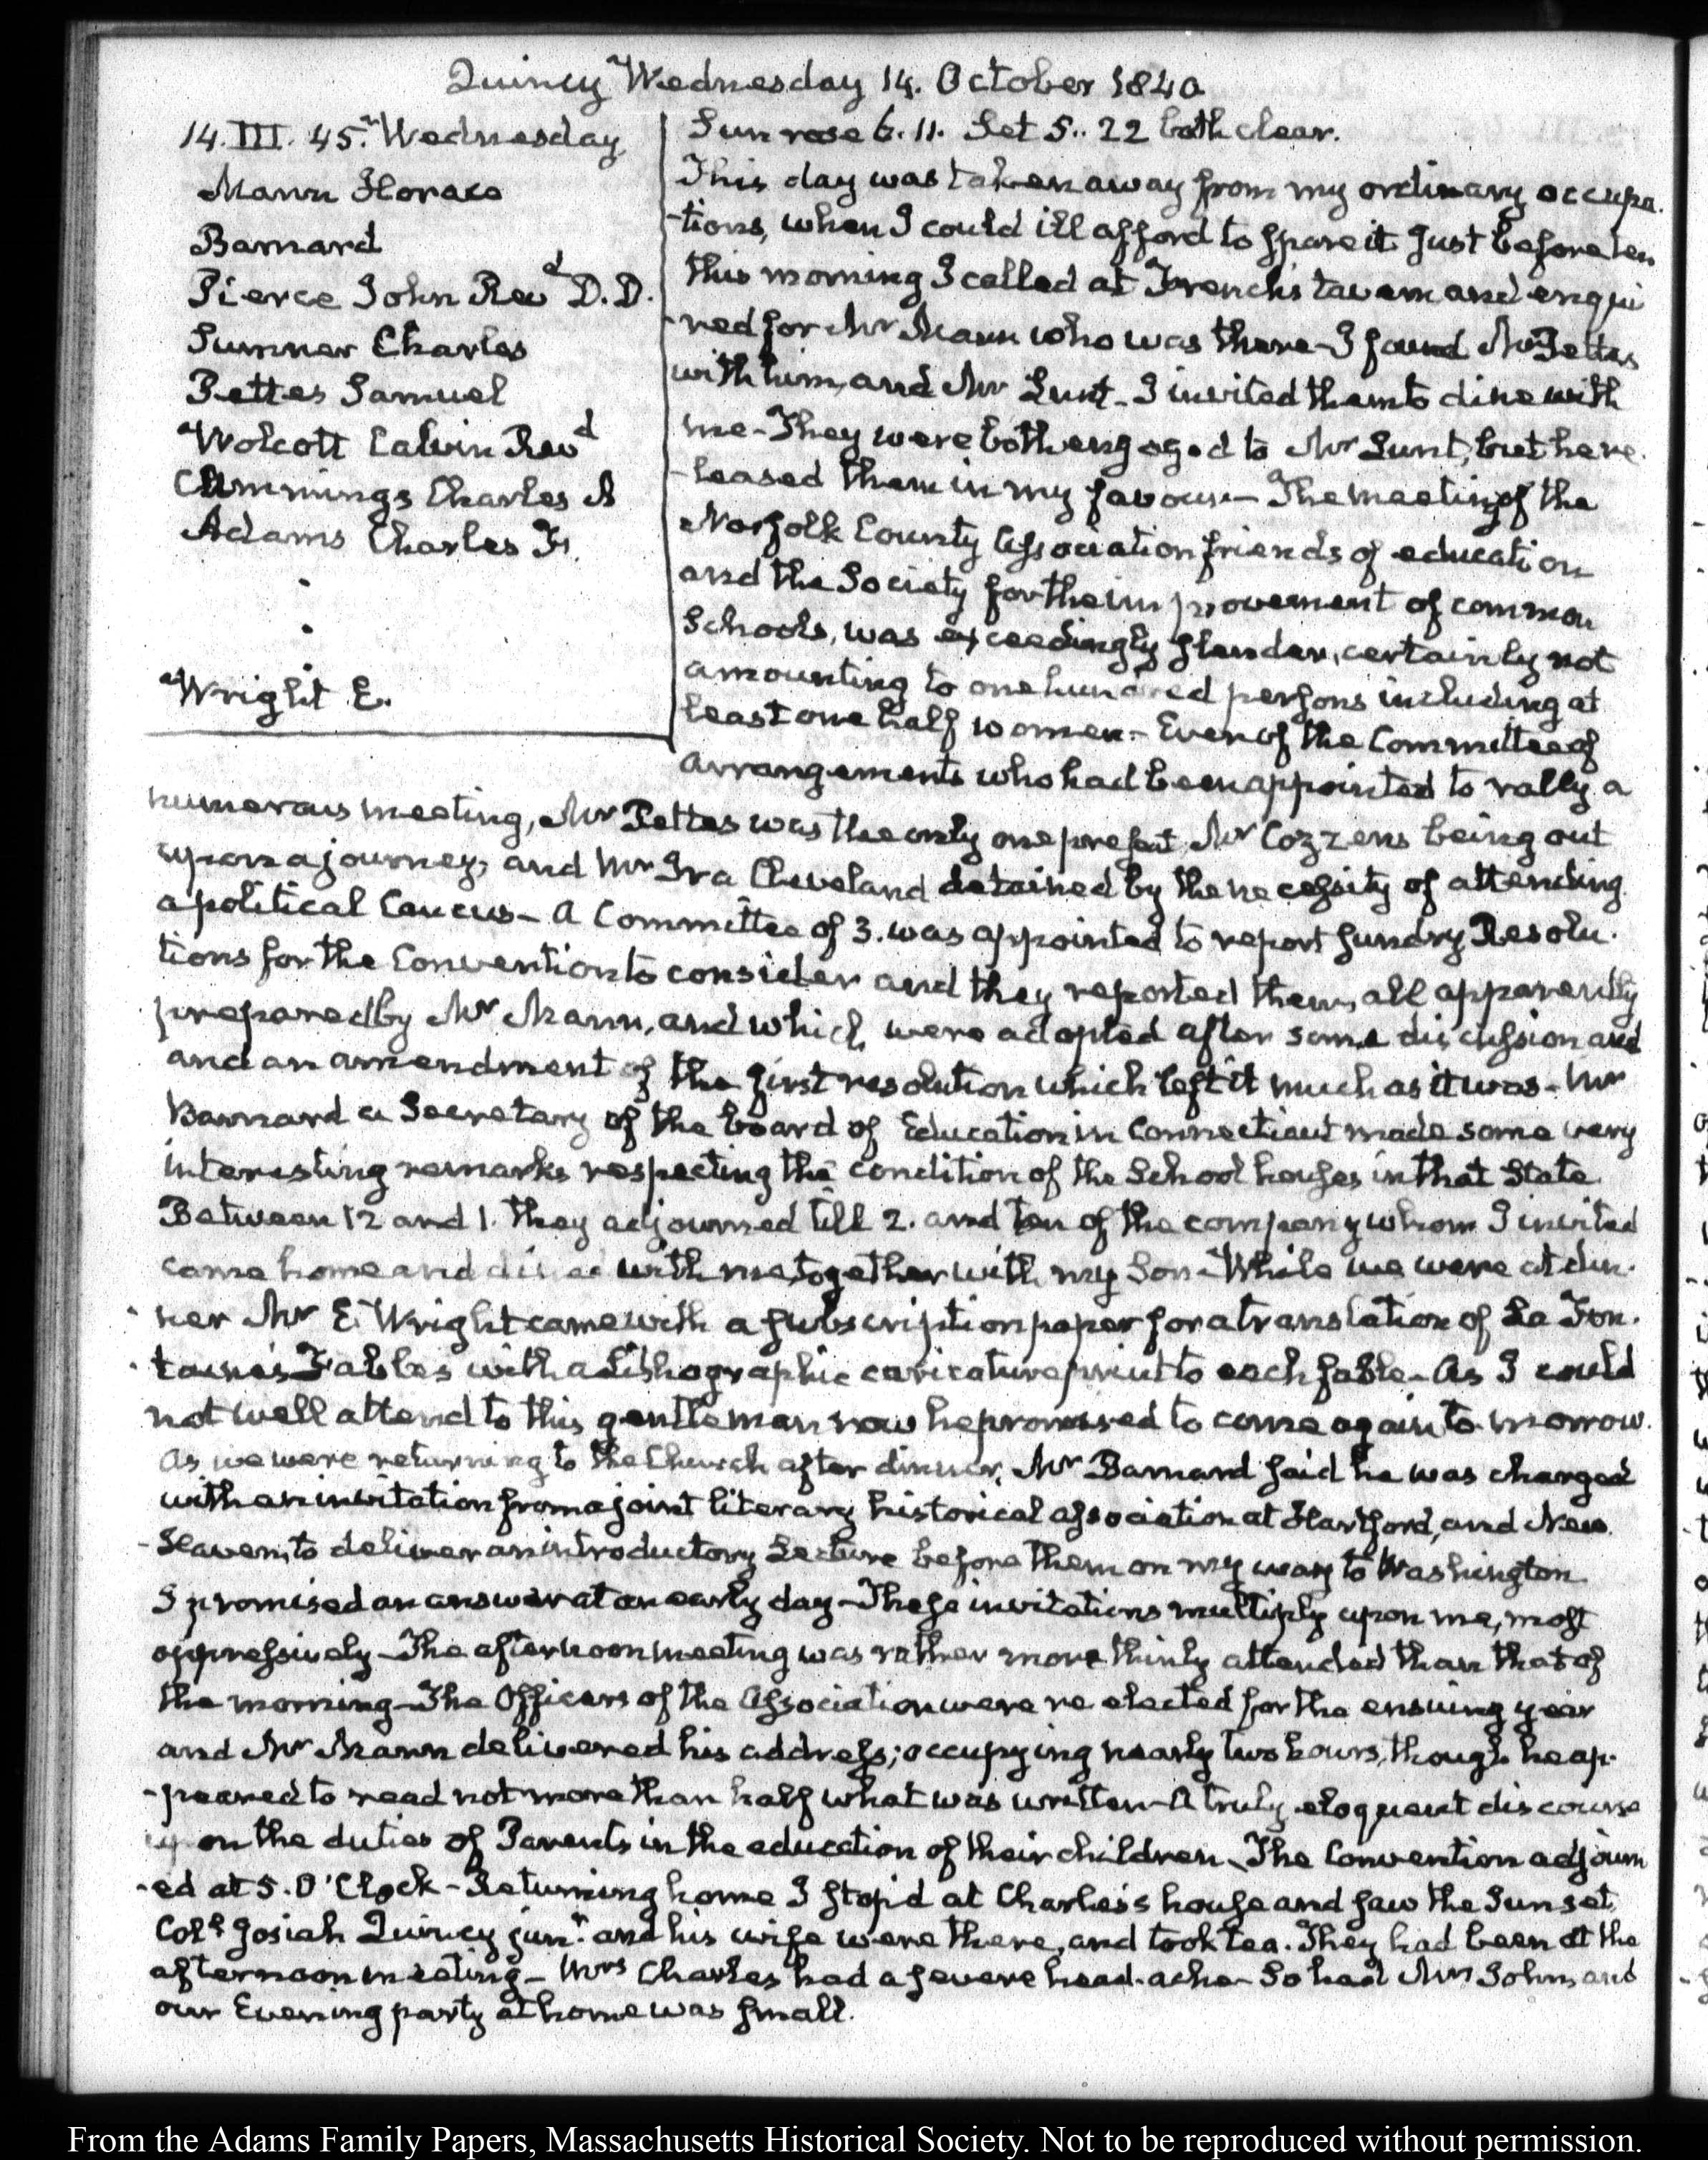 Quincy Wednesday 14. October 1840
14. III. 45. Wednesday
Mann Horace
Barnard
Pierce John Revd D.D.
Sumner Charles
Pettes Samuel
Wolcott Calvin Revd
Cummings Charles A
Adams Charles F.
Wright E.
Sun rose 6. 11. Set 5.. 22 both clear.
This day was taken away from my ordinary occupa-
-tions, when I could ill afford to spare it Just before ten
this morning I called at French's tavern and enqui
-red for Mr Mann who was there – I found Mr Pettes
with him, and Mr Lunt – I invited them to dine with
me – They were both engaged to Mr Lunt, but he re-
-leased them in my favour – The meeting of the
Norfolk County Association friends of education
and the Society for the improvement of common
Schools, was exceedingly slender, certainly not
amounting to one hundred persons including at
least one half women – Even of the Committee of
arrangements who had been appointed to rally a
numerous meeting, Mr Pettes was the only one present, Mr Cozzens being out
upon a journey, and Mr Ira Cleveland detained by the necessity of attending
a political Caucus – A Committee of 3. was appointed to report sundry Resolu-
tions for the Convention to consider and they reported them, all apparently
prepared by Mr Mann, and which were adopted after some discussion and
and an amendment of the first resolution which left it much as it was – Mr
Barnard a Secretary of the board of Education in Connecticut made some very
interesting remarks respecting the condition of the School houses in that State
Between 12 and 1. they adjourned till 2. and ten of the company whom I invited
came home and dined with me together with my Son – While we were at din-
ner Mr E. Wright came with a subscription paper for a translation of La Fon-
taine's Fables with a Lithographic caricature print to each fable – As I could
not well attend to this gentleman now he promised to come again to-morrow.
As we were returning to the Church after dinner, Mr Barnard said he was charged
with an invitation from a joint literary historical association at Hartford, and New
-Haven, to deliver an introductory Lecture before them on my way to Washington
I promised an answer at an early day – These invitations multiply upon me, most
oppressively – The afternoon meeting was rather more thinly attended than that of
the morning – The Officers of the Association were re elected for the ensuing year
and Mr Mann delivered his address; occupying nearly two hours, though he ap-
-peared to read not more than half what was written – A truly eloquent discourse
upon the duties of Parents in the education of their children – The Convention adjourn
-ed at 5. O'Clock – Returning home I stop'd at Charles's house and saw the Sun set,
Coll Josiah Quincy junr and his wife were there, and took tea. They had been at the
afternoon meeting – Mrs Charles had a severe head-ache – So had Mrs John, and
our Evening party at home was small.
From the Adams Family Papers, Massachusetts Historical Society. Not to be reproduced without permission.